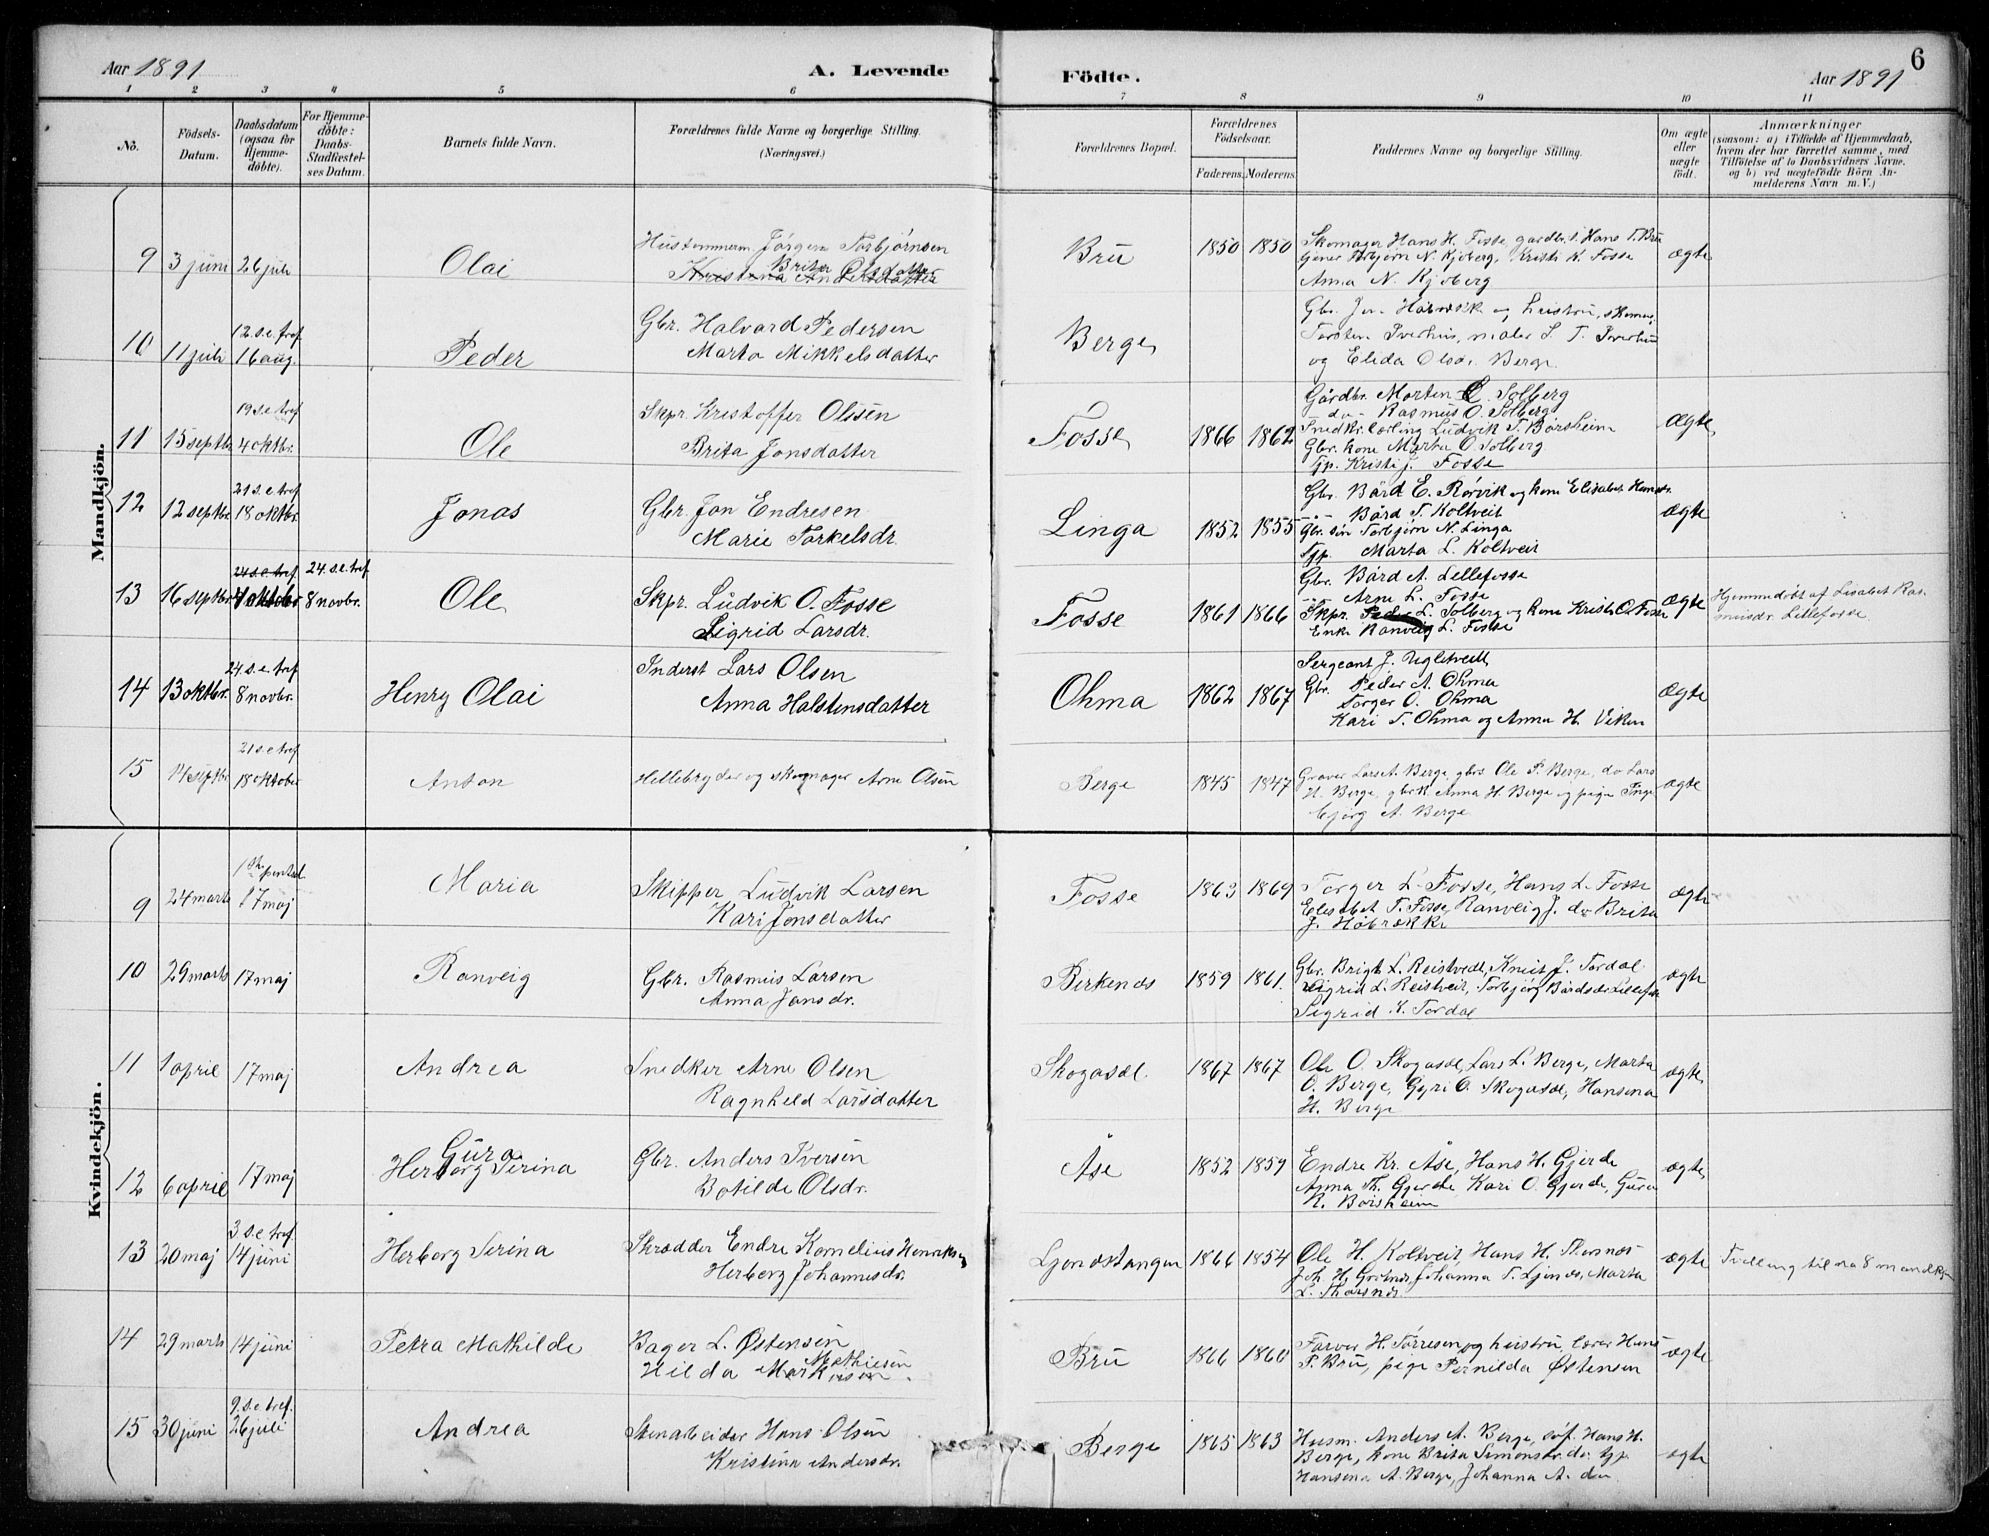 Aar 1891
A. Levende Födte.
Aar 1891
6
1 2 3 4 5 6 7 8 9 10 11
No.
Födsels-Datum.
Daabsdatum (ogsaa for Hjemme-döbte).
For Hjemme-döbte: Daabs-Stadfæstel-ses Datum.
Barnets fulde Navn.
Forældrenes fulde Navne og borgerlige Stilling. (Næringsvei.)
Forældrenes Bopæl.
Forældrenes Födselsaar.
Faderens. Moderens.
Faddernes Navne og borgerlige Stilling.
Om ægte eller uægte födt.
Anmærkninger
(saasom: a) i Tilfælde af Hjemmedaab, hvem der har forrettet samme, med Tilföielse af to Daabsvidners Navne. og b) ved uægtefödte Börn An-melderens Navn m. V.)
Mandkjön.
9 3 juni 26 juli Olai
Hustømmerm. Jørgen Torbjørnsen
Brita Olsdatter
Kristena Andersdatter
Bru 1850 1850
Skomager Hans H. Fosse, gardbr. Hans T. Bru
Torbjørn N. Kjøberg, Kristi K. Fosse
Anna N. Kjøberg
ægte
10 11 juli 12 s.e. tref. 16 aug. Peder
Gbr. Halvard Pedersen
Marta Mikkelsdatter
Berge
og Elida Olsdr. Berge
11 15 septbr 19 s.e. tref 4 oktbr. Ole
Skpr. Kristoffer Olsen
Brita Jonsdatter
Fosse 1866 1862
Gårdbr. Morten O. Solberg
do - Rasmus O. Solberg
Snedkerlærling Ludvik T. Børsheim
Gbr. kone Marta O. Solberg
Tjp. Kristi J. Fosse
ægte
12 12 septbr 21 s.e. tref 18 oktbr. Jonas
Gbr. Jon Endresen
Marie Torkelsdr.
Linga 1852 1855
Gbr. Bård E. Rørvik og kone Elisabet Hansdr.
Bård T. Koltveit
Gbr. søn Torbjørn N. Linga
Tjp. Marta L. Koltveit
ægte
13 16 septbr 24 s.e. tref 24. s.e. tref 8 novbr. Ole
Skpr. Ludvik O. Fosse
Sigrid Larsdr.
Fosse 1861 1866
Gbr. Bård A. Lillefosse
Arne L. Fosse
Skpr. Peder L. Solberg og kone Kristi O. Fosse
Enke Ranveig L. Fosse
ægte
Hjemmedøbt af Lisabet Ras-
musdr. Lillefosse
14 13 oktbr. 24. s.e. tref 8 novbr. Henry Olai
Inderst Lars Olsen
Anna Halstensdatter
Ohma 1862 1867
Sergeant J. Ugletveit
Gbr. Peder A. Ohma
Torger O. Ohma
Kari T. Ohma og Anna H. Viken
ægte
15 14 septbr 21 s.e tref 18 oktober Anton
Hellebryder og skomager Arne Olsen
Berge 1845 1847
Graver Lars A. Berge, gbr. Ole P. Berge, do Lars
H. Berge, gbrk Anna H. Berge og pige Inge-
bjørg A. Berge
ægte
Kvindekjön.
9 24 marts 17 maj Maria
Skipper Ludvik Larsen
Kari Jonsdatter
Fosse 1863 1869
Torger L. Fosse, Hans L. Fosse
Elisabet T. Fosse, Ranveig J. do Brita
J. Høbrække
ægte
10 29 marts 17 maj Ranveig
Gbr. Rasmus Larsen
Anna Jansdr.
Birkenes 1859 1861
Gbr. Brigt L. Reistveit, Knut J. Tordal
Sigrid L. Reistveit, Torbjørg Bårdsdr. Lillefosse
Sigrid K. Tordal
ægte
11 1 april 17 maj Andrea
Snedker Arne Olsen
Ragnheld Larsdatter
Skogasæl 1867 1867
Ole O. Skogasæl, Lars L. Berge, Marta
O. Berge, Gyri O. Skogasæl, Hansena
H. Berge
ægte
12 6 april 17 maj Gura
Herborg Serina
Gbr. Anders Iversen
Botilde Olsdr.
Åse 1852 1859
Endre Kr. Åse, Hans H. Gjerde
Anna Th. Gjerde, Kari O. Gjerde, Guro
R. Børsheim
ægte
13 20 maj 3 s.e tref 14 juni Herborg Serina
Skrædder Endre Kornelius Henriksen
Herborg Johannesdr.
Ljonæstangen 1866 1854
Ole H. Koltveit, Hans H. Thorsnes
Joh. H. Grotnes, Johanna T. Ljones, Marta
L. Thorsnes
ægte
Tvilling til no 8 mandkjøn
14 29 marts 14 juni Petra Mathilde
Bager L. Østensen
Hilda Mathiesen
Bru 1866 1860
Farver H. Tørresen og hustru, lærer Hans
T. Bru, pige Pernilda Østensen
ægte
15 30 juni 9. s.e. tref. 26 juli Andrea
Stenarbeider Hans Olsen
Kristina Andersdr.
Berge 1865 1863
Husm. Anders A. Berge, Hans H.
Berge, kone Brita Simonsdr. do. tjp.
Hansena A. Berge, Johanna A. do
ægte